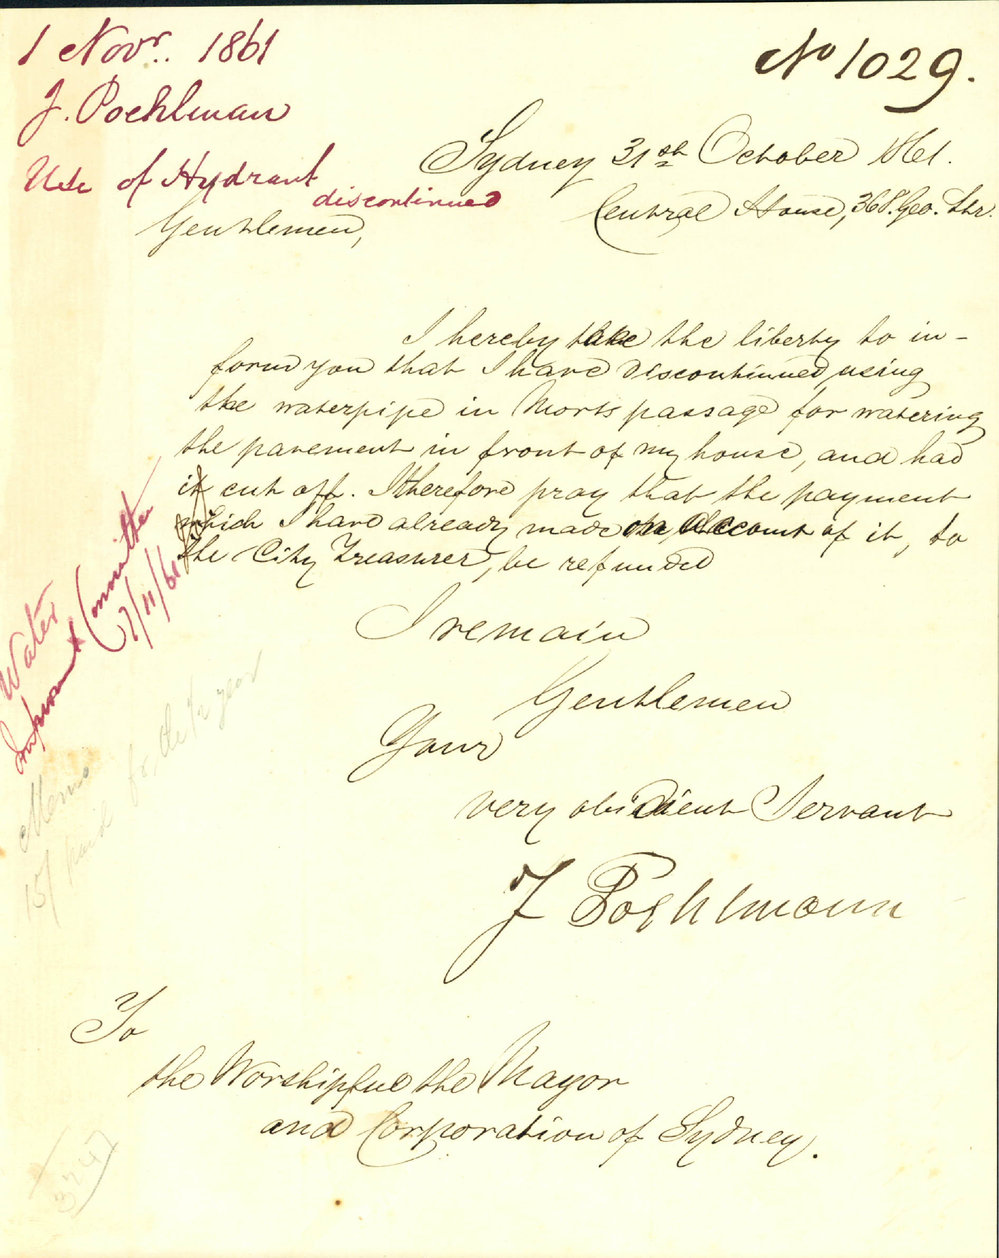 1 Novr. 1861
J. Poehlman
Use of Hydrant
discontinued
No 1029.
Sydney 31st October 1861.
Central House, 368. Geo. Str.
Gentlemen,
I hereby take the liberty to in-
form you that I have discontinued using
the waterpipe in Morts passage for watering
the pavement in front of my house, and had
it cut off. I therefore pray that the payment
which I have already made on account of it, to
the City Treasurer, be refunded
I remain
Gentlemen
Your
very obidient Servant
J Poehlmann
To
the Worshipful the Mayor
and Corporation of Sydney.
Water
Improvmt Committee
7/11/61
Memo
15/ paid for the 1/2 year